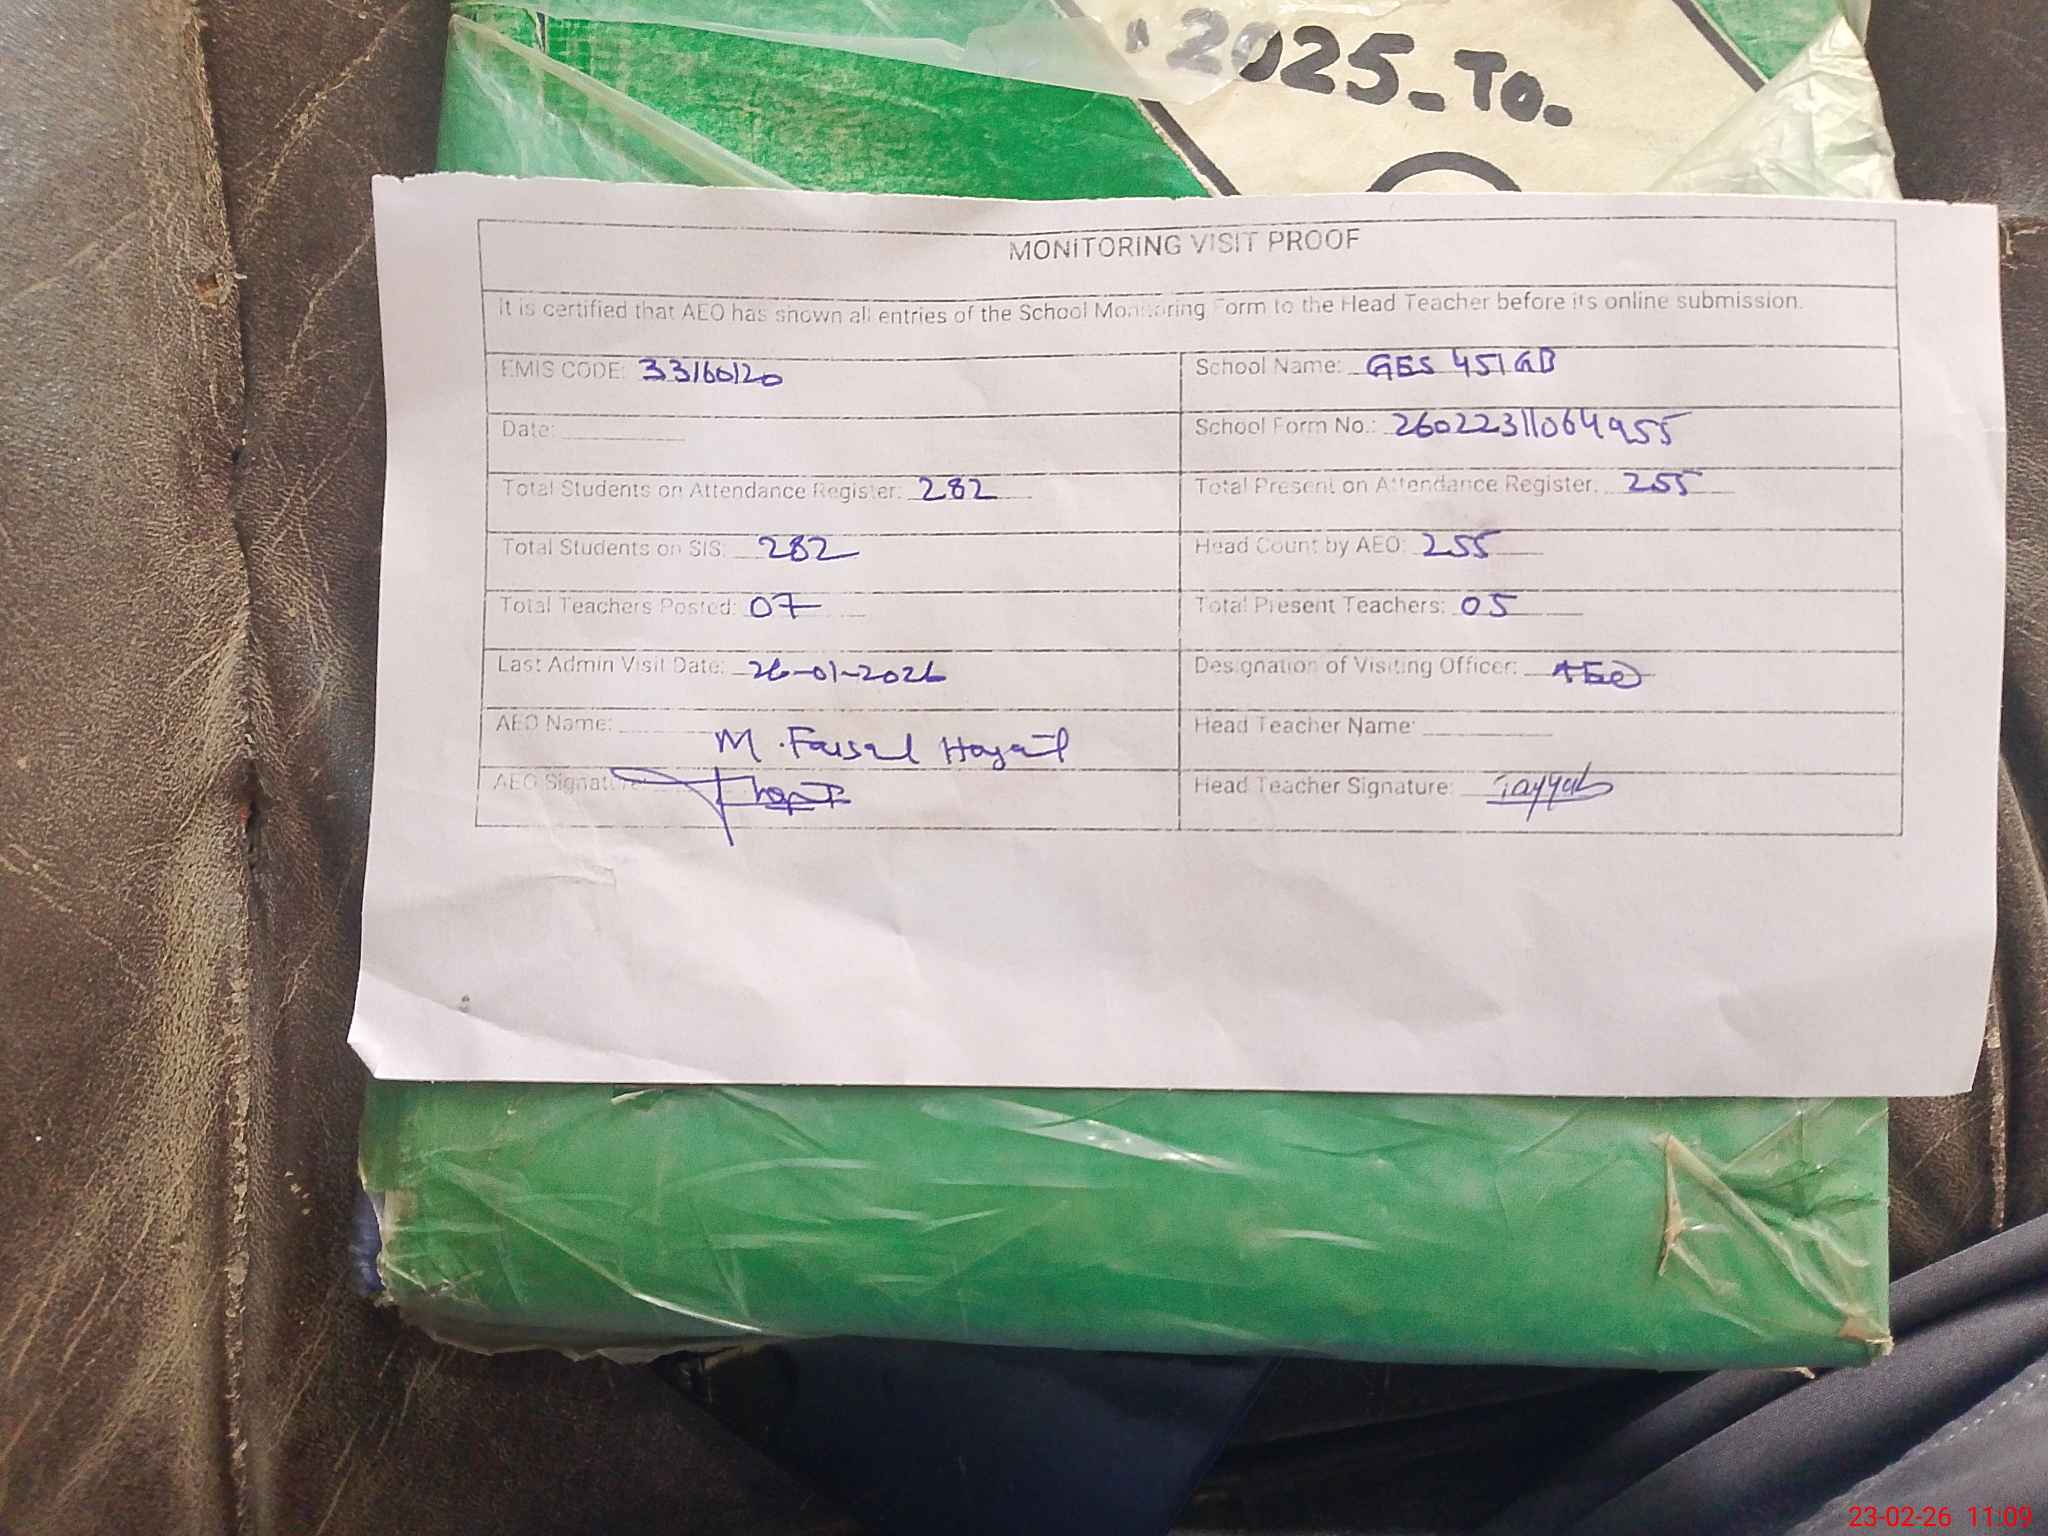 "2025-To-
MONITORING VISIT PROOF
It is certified that AEO has shown all entries of the School Monitoring Form to the Head Teacher before its online submission.
EMIS CODE: 33160120
School Name: GES 451 GB
Date:
School Form No.: 26022311064955
Total Students on Attendance Register: 282
Total Present on Attendance Register: 255
Total Students on SIS: 282
Head Count by AEO: 255
Total Teachers Posted: 07
Total Present Teachers: 05
Last Admin Visit Date: 26-01-2026
Designation of Visiting Officer: AEO
AEO Name: M. Faisal Hayat
Head Teacher Name:
AEO Signature:
Head Teacher Signature: Tayyab
23-02-26 11:09